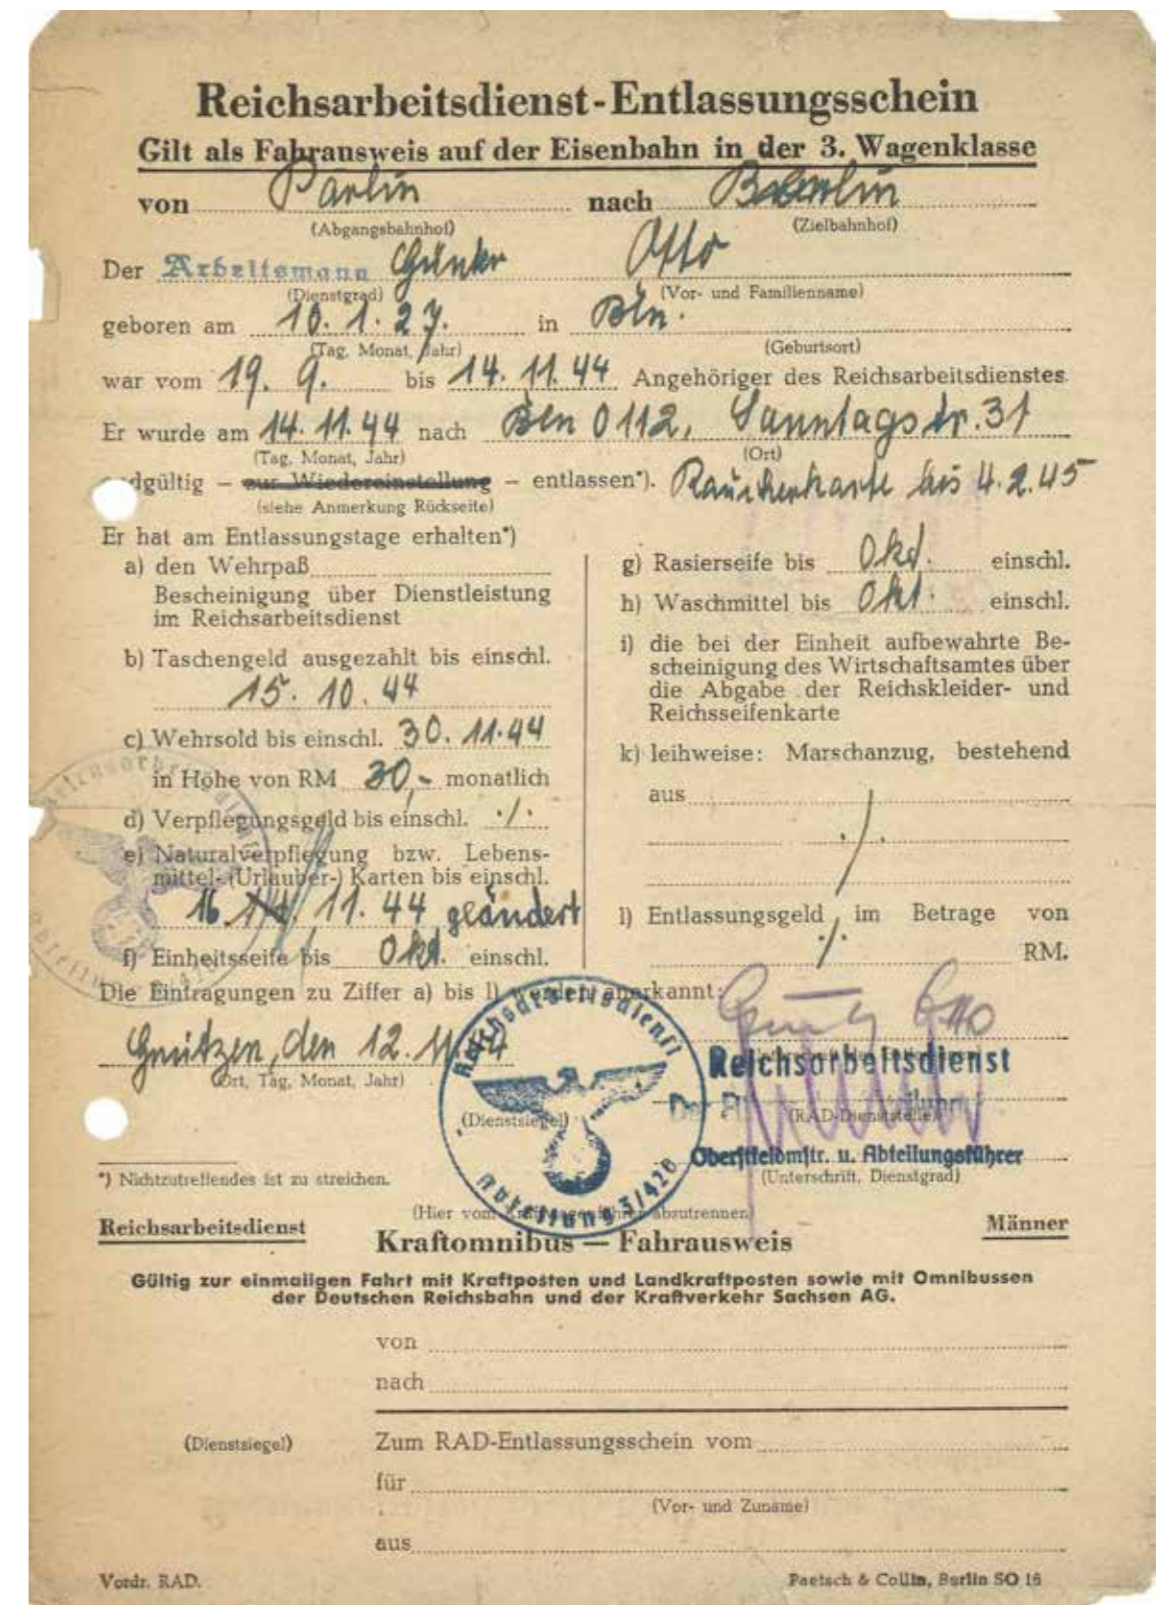 Reichsarbeitsdienst-Entlassungsschein
Gilt als Fahrausweis auf der Eisenbahn in der 3. Wagenklasse
von Parlin nach Berlin
(Abgangsbahnhof) (Zielbahnhof)
Der Arbeitsmann Günter Otto
(Dienstgrad) (Vor- und Familienname)
geboren am 10. 1. 27. in Bln.
(Tag, Monat, Jahr) (Geburtsort)
war vom 19. 9. bis 14. 11. 44 Angehöriger des Reichsarbeitsdienstes.
Er wurde am 14. 11. 44 nach Bln O 112, Sonntagstr. 31
(Tag, Monat, Jahr) (Ort)
dgültig – zur Wiedereinstellung – entlassen*). Raucherkarte bis 4. 2. 45
(siehe Anmerkung Rückseite)
Er hat am Entlassungstage erhalten*)
a) den Wehrpaß
Bescheinigung über Dienstleistung
im Reichsarbeitsdienst
b) Taschengeld ausgezahlt bis einschl.
15. 10. 44
c) Wehrsold bis einschl. 30. 11. 44
in Höhe von RM 30,- monatlich
d) Verpflegungsgeld bis einschl. ·/·
e) Naturalverpflegung bzw. Lebens-
mittel-(Urlauber-) Karten bis einschl.
16. 11. 44 geändert
f) Einheitsseife bis Okt. einschl.
g) Rasierseife bis Okt. einschl.
h) Waschmittel bis Okt. einschl.
i) die bei der Einheit aufbewahrte Be-
scheinigung des Wirtschaftsamtes über
die Abgabe der Reichskleider- und
Reichsseifenkarte
k) leihweise: Marschanzug, bestehend
aus
·/·
l) Entlassungsgeld im Betrage von
·/· RM.
Die Eintragungen zu Ziffer a) bis l) werden anerkannt:
den 12. 11. 44
(Ort, Tag, Monat, Jahr)
Günter Otto
Reichsarbeitsdienst
Abteilung 3/426
(Dienstsiegel)
Reichsarbeitsdienst
(RAD-Dienststelle)
Oberstfeldmstr. u. Abteilungsführer
(Unterschrift, Dienstgrad)
*) Nichtzutreffendes ist zu streichen.
(Hier vom abzutrennen)
Reichsarbeitsdienst Männer
Kraftomnibus — Fahrausweis
Gültig zur einmaligen Fahrt mit Kraftposten und Landkraftposten sowie mit Omnibussen
der Deutschen Reichsbahn und der Kraftverkehr Sachsen AG.
von
nach
(Dienstsiegel) Zum RAD-Entlassungsschein vom
für
(Vor- und Zuname)
aus
Vordr. RAD. Paetsch & Collin, Berlin SO 16